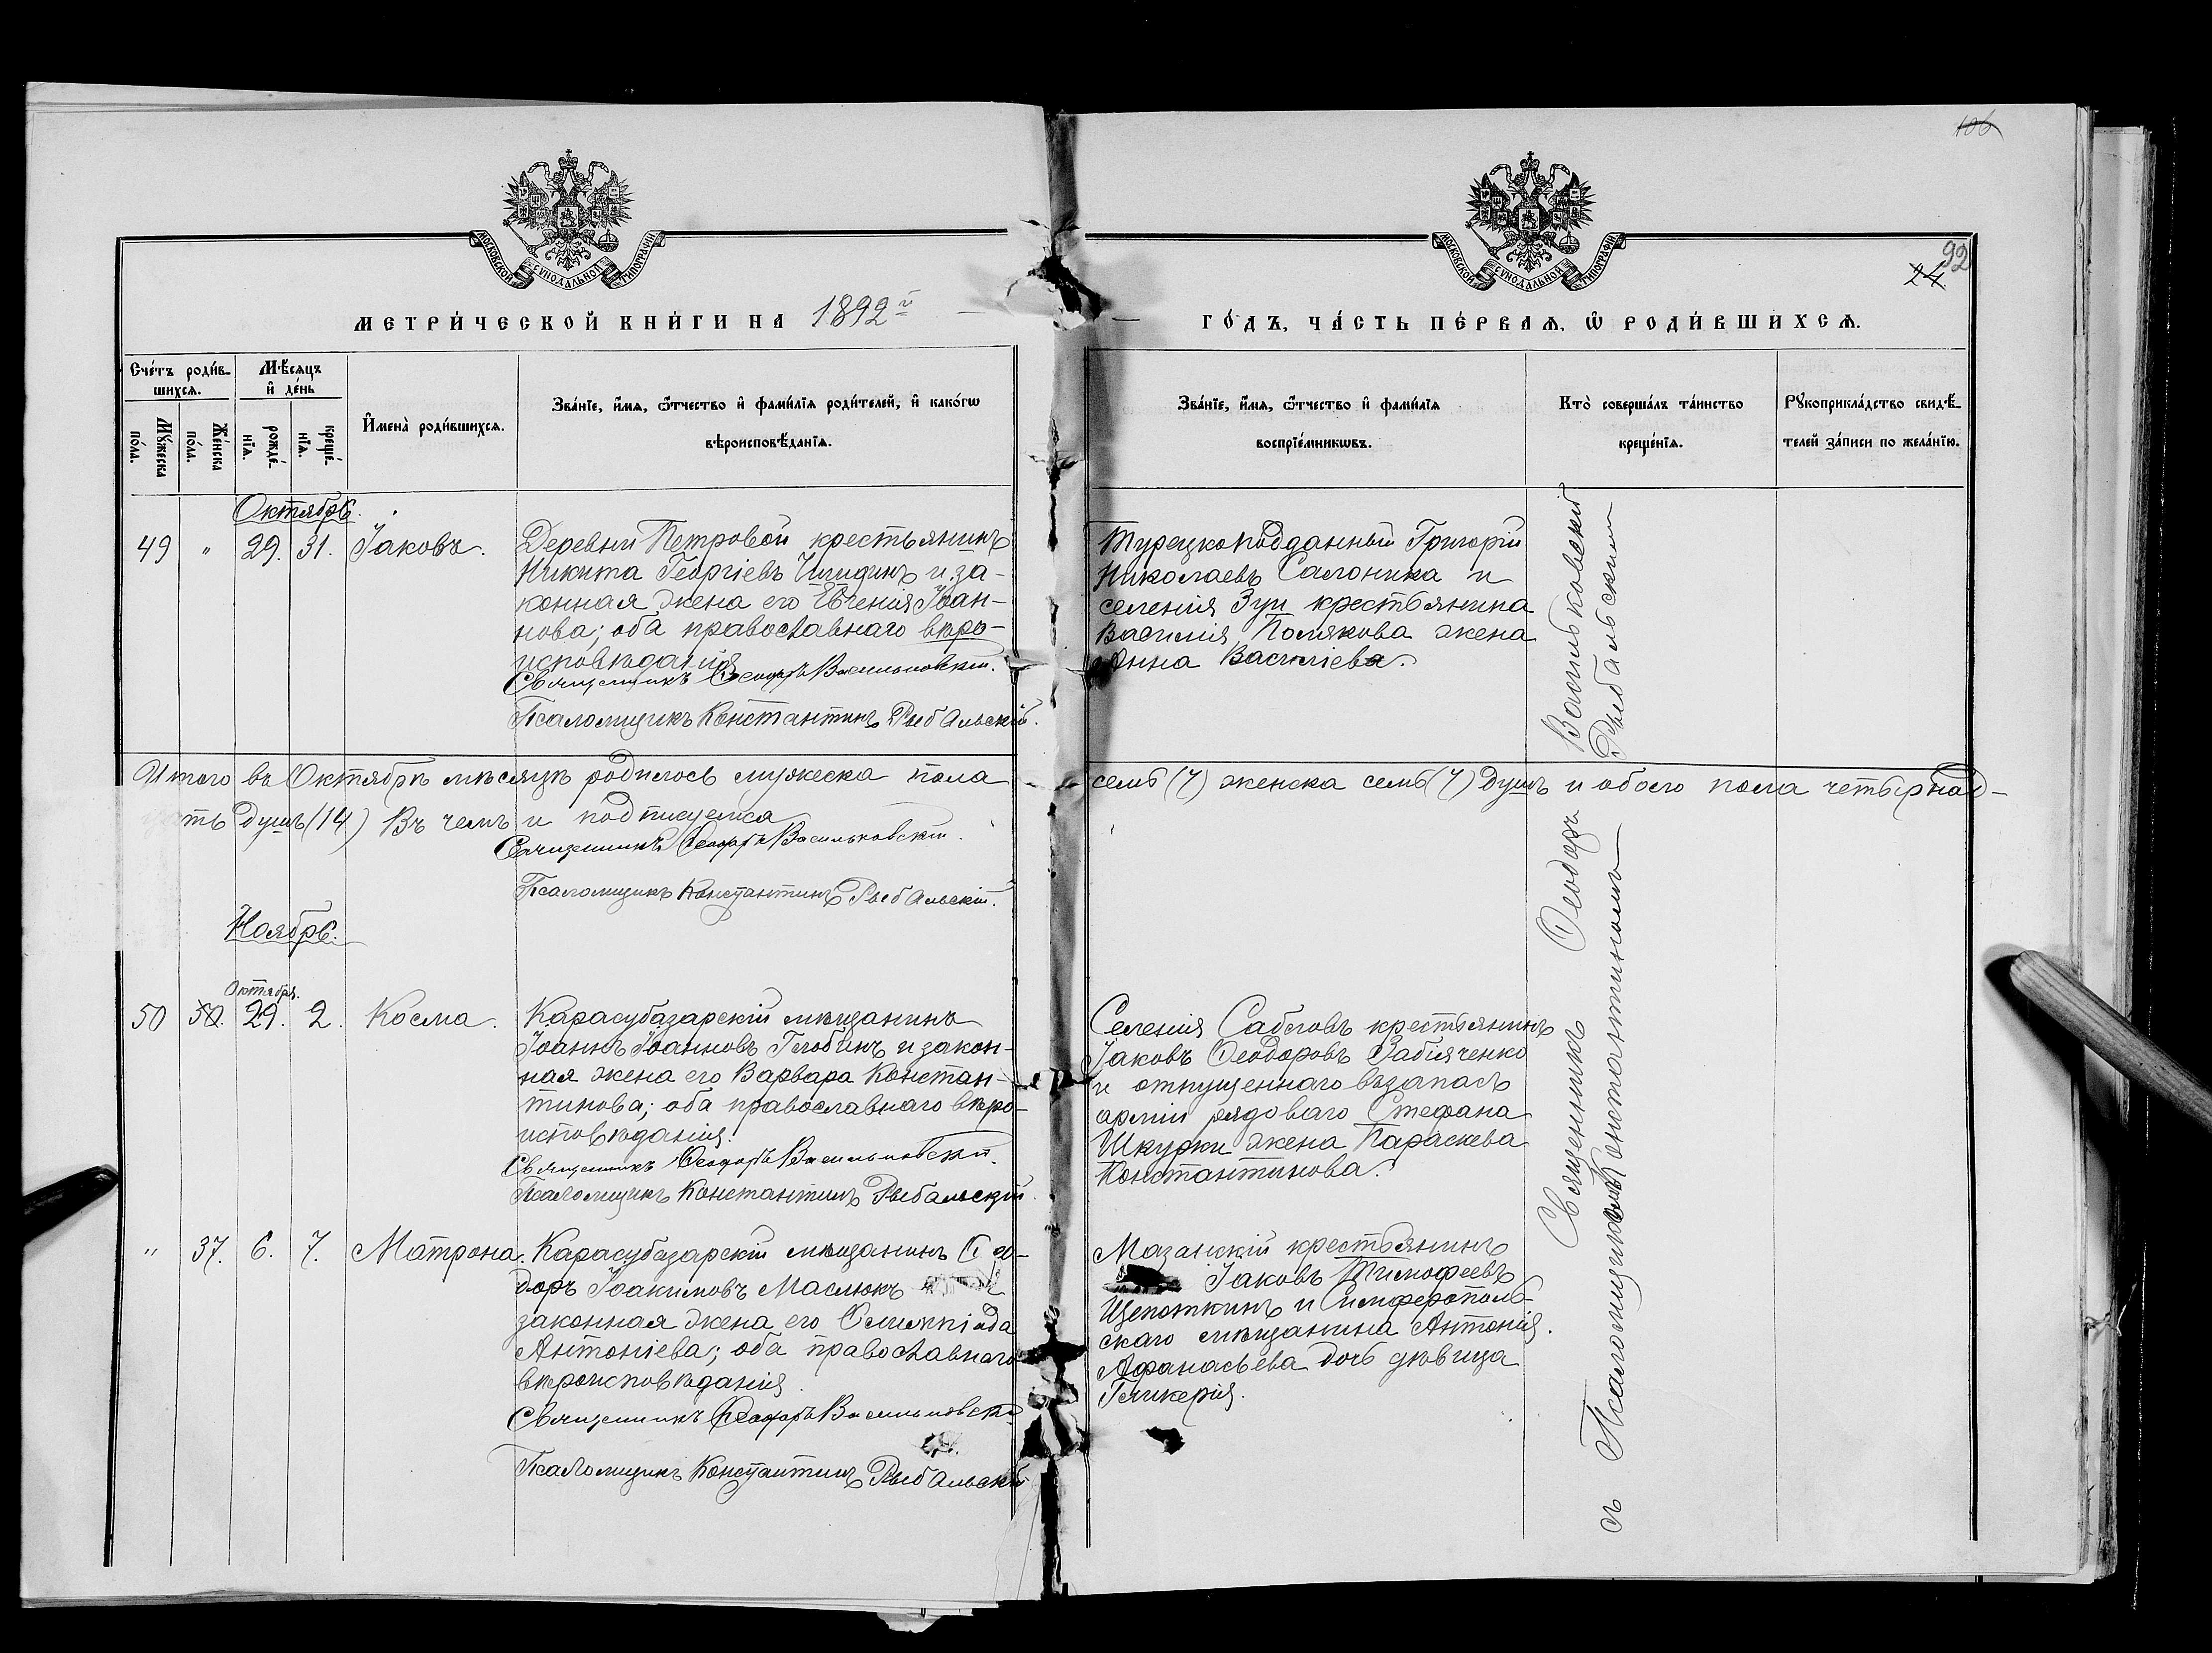 106
92
24.
МОСКОВСКОЙ СѴНОДАЛЬНОЙ ТИПОГРАФІИ
МОСКОВСКОЙ СѴНОДАЛЬНОЙ ТИПОГРАФІИ
МЕТРИ́ЧЕСКОЙ КНИ́ГИ НА 1892й
ГО́ДЪ, ЧА́СТЬ ПЕ́РВАѦ, Ѡ РОДИ́ВШИХСѦ.
Сче́тъ роди́в-
шихсѧ.
Мꙋ́жеска по́ла.
Же́нска по́ла.
Мѣ́сѧцъ
и҆ де́нь
рожде́-
нїѧ.
креще́-
нїѧ.
И҆мена̀ роди́вшихсѧ.
Зва́нїе, и҆́мѧ, ѻ҆́тчество и҆ фами́лїѧ роди́телей, и҆ како́гѡ
вѣроисповѣ́данїѧ.
Зва́нїе, и҆́мѧ, ѻ҆́тчество и҆ фами́лїѧ
воспрїе́мникѡвъ.
Кто̀ соверша́лъ та́инство
креще́нїѧ.
Рꙋкоприкла́дство свидѣ́-
телей за́писи по жела́нїю.
Октябрь.
49 " 29. 31. Іаковъ.
Деревни Петровой крестьянинъ
Никита Георгіевъ и за-
конная жена его Евгенія Іоан-
нова; оба православнаго вѣро-
исповѣданія
Священникъ Ѳеодоръ Васильковскій.
Псаломщикъ Константинъ Рыбальскій.
Турецкоподданный Григорій
Николаевъ Салоника и
селенія Зуи крестьянина
Василія Полякова жена
Анна Василіева.
Итого въ Октябрѣ мѣсяцѣ родилось мужеска пола
семь (7) женска семь (7) душъ и обоего пола четырнад-
ть душъ (14) Въ чемъ и подписуемся
Священникъ Ѳеодоръ Васильковскій.
Псаломщикъ Константинъ Рыбальскій.
Ноябрь.
Октября.
50 50. 29. 2. Косма.
Карасубазарскій мѣщанинъ
Іоаннъ Іоанновъ Глобинъ и закон-
ная жена его Варвара Констан-
тинова; оба православнаго вѣро-
исповѣданія.
Священникъ Ѳеодоръ Васильковскій.
Псаломщикъ Константинъ Рыбальскій.
Селенія Сабловъ крестьянинъ
Іаковъ Ѳеодоровъ Забіяченко
и отпущеннаго въ запасъ
арміи рядоваго Стефана
Шкурки жена Параскева
Константинова.
" 37. 6. 7. Матрона.
Карасубазарскій мѣщанинъ Ѳео-
доръ Іоакимовъ Маслюкъ и
законная жена его Олимпіада
Антоніева; оба православнаго
вѣроисповѣданія.
Священникъ Ѳеодоръ Васильковскій
Псаломщикъ Константинъ Рыбальскій
Мазанскій крестьянинъ
Іаковъ Тимофеевъ
Щепоткинъ и Симферополь-
скаго мѣщанина Антонія
Афанасьева дочь дѣвица
Гликерія.
Священникъ Ѳеодоръ Васильковскій
съ Псаломщикомъ Константиномъ Рыбальскимъ